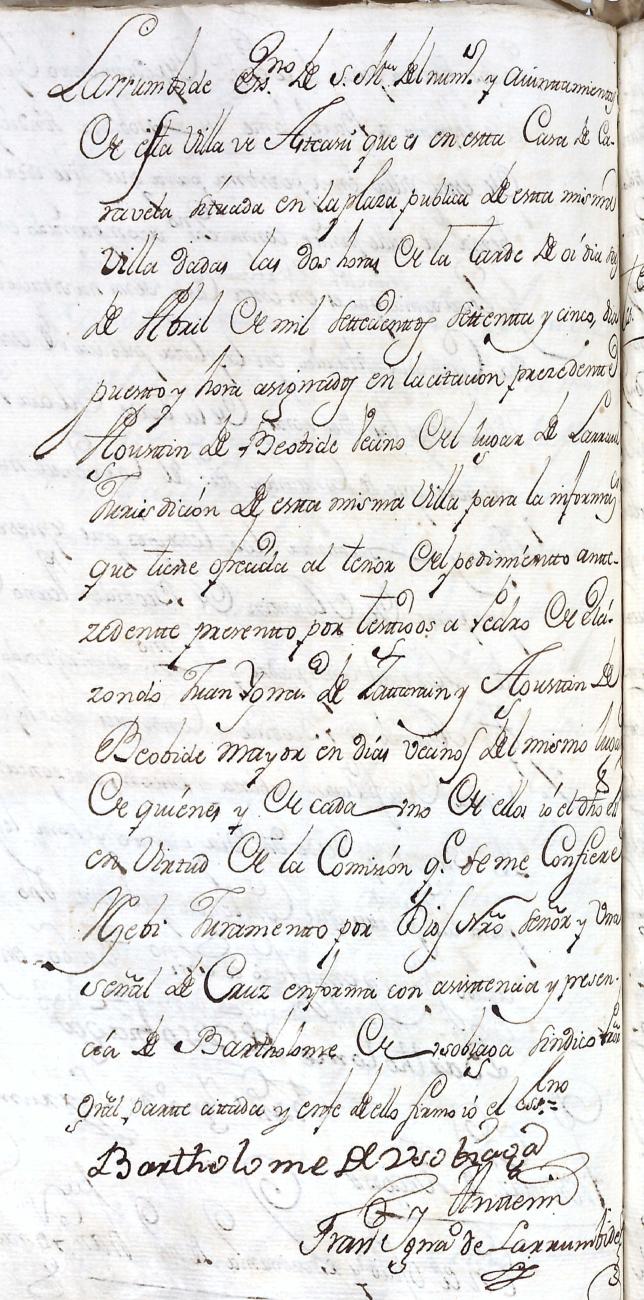 Larrumbide Ess.no de S. M. del num.o y aiuntamiento
de esta Villa de Asteasu que es en estta Casa de Ca-
ravela situada en la plaza publica de estta misma
Villa dadas las dos horas de la tarde de oi dia
de Abril de mil settecientos settentta y cinco,
puestto y hora asignados en la citacion prezedentte
Agusttin de Beobide vecino del lugar de Larraul
Jurisdición de estta misma Villa para la informaz.on
que tiene ofrecida al tenor del pedimientto antte-
zedentte presentto por testtigos a Pedro de Eli-
zondo Juan Ygna.o de Zattarain y Agusttin de
Beobide mayor en dias vecinos del mismo lugar
de quiénes y de cada uno de ellos ió el dho es.no
en Virtud de la Comisión q.e se me Confiere
Rezebi Juramentto por Dios Nrõ señor y una
señal de Cruz en forma con asisttencia y presen-
cia de Bartholome de Usobiaga Sindico Pror
Gñral, partte cittada y en fe de ello firmo ió el ess.no =
Bartholome de Usobiaga
Antte mi
Fran.co Igna.o de Larrumbide